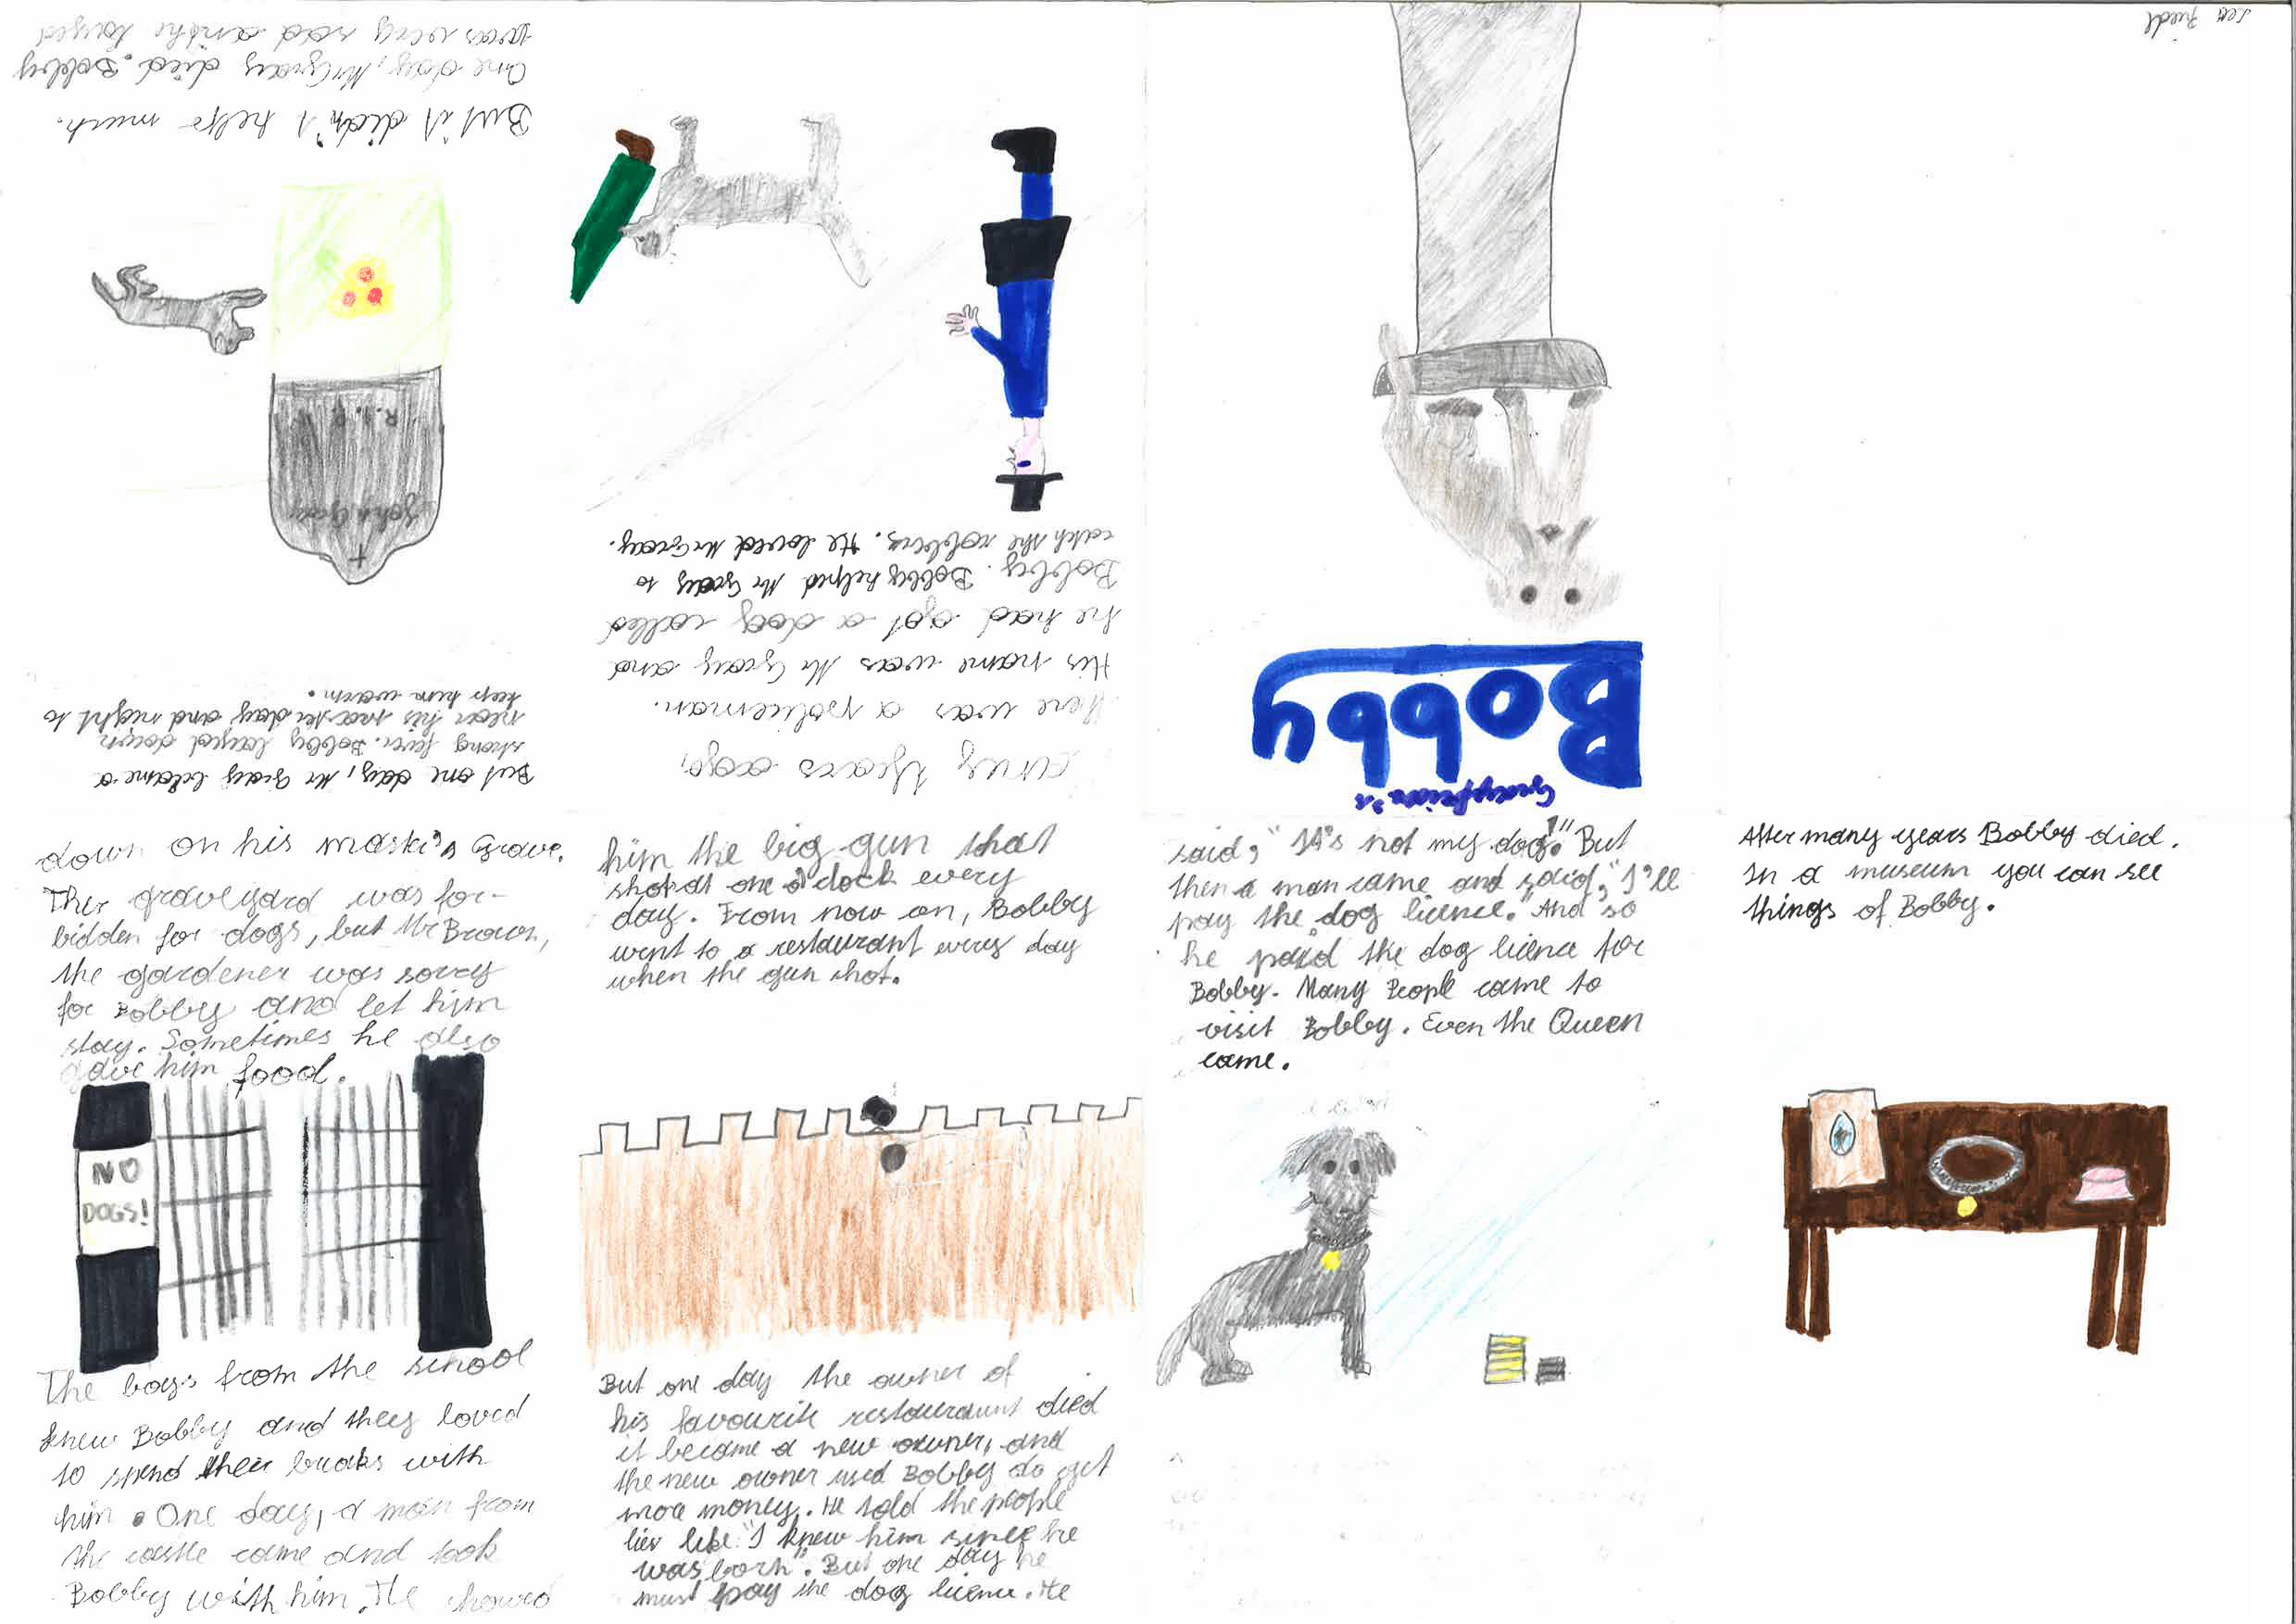 Greyfriar's
Bobby
Lea Riedl
Many Years ago,
there was a policeman.
His name was Mr Gray and
he had got a dog called
Bobby. Bobby helped Mr Gray to
catch the robbers. He loved Mr Gray.
But one day, Mr Gray became a
strong fever. Bobby layed down
near his master day and night to
keep him warm.
John Gray
R.I.P.
But it didn't help much.
One day, Mr Gray died. Bobby
was very sad and he layed
down on his master's Grave.
The graveyard was for-
bidden for dogs, but Mr Brown,
the gardener was sorry
for Bobby and let him
stay. Sometimes he also
gave him food.
NO
DOGS!
The boys from the school
knew Bobby and they loved
to spend their breaks with
him. One day, a man from
the castle came and took
Bobby with him. He showed
him the big gun that
shot at one o'clock every
day. From now on, Bobby
went to a restaurant every day
when the gun shot.
But one day the owner of
his favourite restaurant died
it became a new owner, and
the new owner used Bobby do get
more money. He told the people
lies like "I knew him since he
was born". But one day he
must pay the dog licence. He
said, "It's not my dog!" But
then a man came and said, "I'll
pay the dog licence." And so
he paid the dog licence for
Bobby. Many People came to
visit Bobby. Even the Queen
came.
After many years Bobby died.
In a museum you can see
things of Bobby.